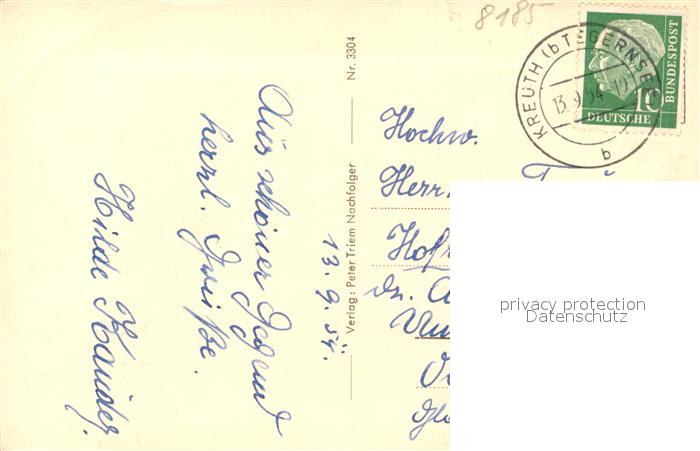 8185
KREUTH (b TEGERNSEE
13.9.54
b
10
DEUTSCHE
BUNDESPOST
Nr. 3304
Verlag: Peter Triem Nachfolger
Aus schöner Gegend
herzl. Grüße.
Hilde
13.9.54.
Hochw.
Herrn
Hof
Dr. A
privacy protection
Datenschutz